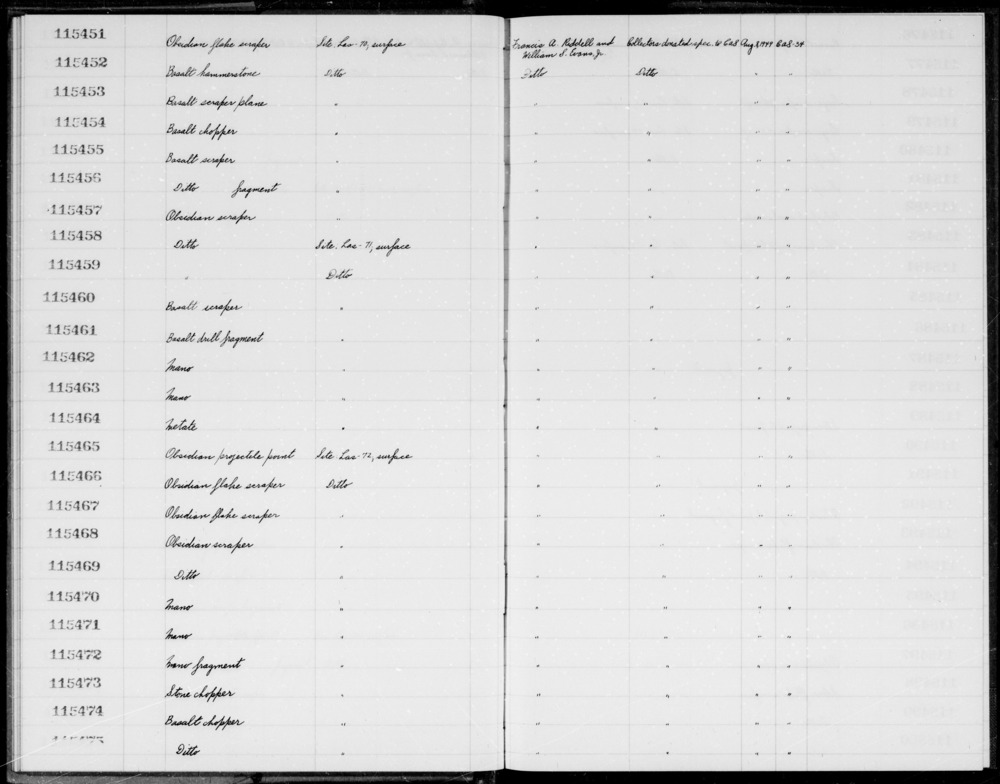 115451 Obsidian flake scraper Site Las-70, surface Francis A. Riddell and Collectors donated spec. to CAS Aug. 1949 CAS-54
William S. Evans, Jr.
115452 Basalt hammerstone Ditto Ditto Ditto " "
115453 Basalt scraper plane " " " " "
115454 Basalt chopper " " " " "
115455 Basalt scraper " " " " "
115456 Ditto fragment " " " " "
115457 Obsidian scraper " " " " "
115458 Ditto Site Las-71, surface " " " "
115459 " Ditto " " " "
115460 Basalt scraper " " " " "
115461 Basalt drill fragment " " " " "
115462 Mano " " " " "
115463 Mano " " " " "
115464 Metate " " " " "
115465 Obsidian projectile point Site Las-72, surface " " " "
115466 Obsidian flake scraper Ditto " " " "
115467 Obsidian flake scraper " " " " "
115468 Obsidian scraper " " " " "
115469 Ditto " " " " "
115470 Mano " " " " "
115471 Mano " " " " "
115472 Mano fragment " " " " "
115473 Stone chopper " " " " "
115474 Basalt chopper " " " " "
115475 Ditto " " " " "